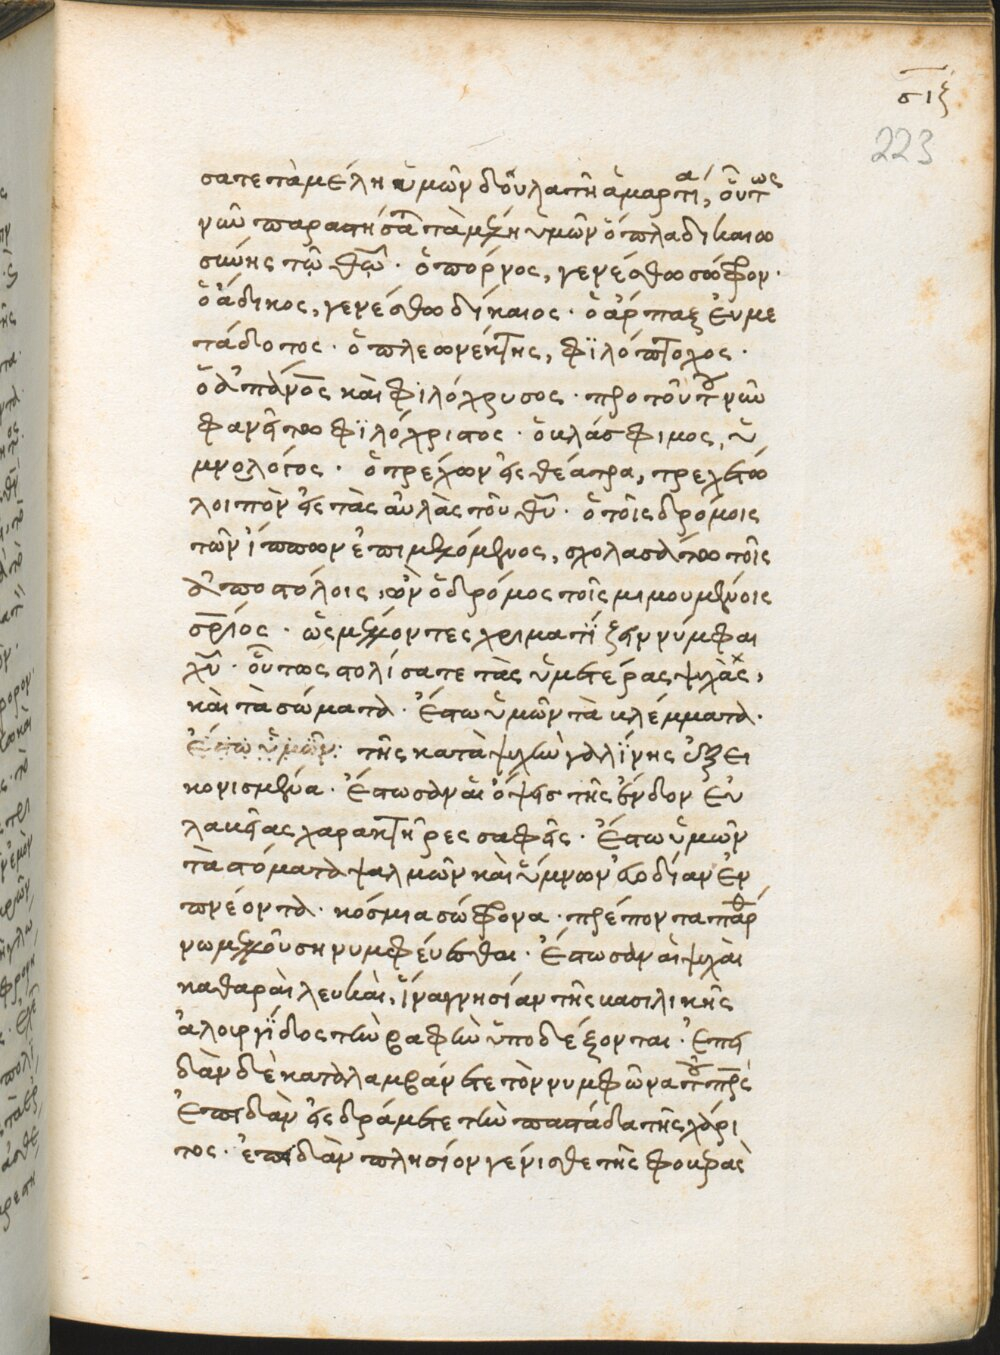 σιξ
223
σατε τὰ μέλη ὑμῶν δοῦλα τῆ ἁμαρτί(α), οὕτ(ως)
νῦν παραστήσα(τε) τὰ μέλη ὑμῶν ὅπλα δικαιο
σύνης τῶ θῶ· ὁ πόρνος, γενέσθω σώφρον·
ὁ ἄδικος, γενέσθω δίκαιος· ὁ ἅρπαξ εὐμε
τάδοτος· ὁ πλεονέκτης, φϊλόπτοχος·
καὶ φιλόχρυσος· πρὸ τούτου νῦν
φανήτω φϊλόχριστος· ὁ βλάσφιμος, ὑ
μνολόγος· ὁ τρέχων εἰς θέατρα, τρεχέτω
λοιπὸν εἰς τὰς αὐλὰς τοῦ θῦ· ὁ τοῖς δρόμοις
τῶν ἵππων ἐπιμελόμενος, σχολασάτω τοῖς
ἀποστόλοις, ὁ δρόμος τοῖς μιμουμένοις
σ̅ρ̅ι̅ος· ὡς μέλλοντες χριματίζειν νύμφαι
χῦ· οὕτως στολίσατε τὰς ὑμετέρας ψυχὰς,
καὶ τὰ σώματα· ἔστω ὑμῶν τὰ βλέμματα·
ἔστω ὑμῶν· τῆς κατὰ ψυχὴν γαλίνης ἐξει
κονισμένα· ἔστωσαν αἱ ὄψεις τῆς ἔνδον εὐ
λαβείας χαρακτῆρες σαφεῖς· ἔστω ὑμῶν
τὰ στόματα ψαλμῶν καὶ ὕμνων εὐοδίαν ἐν
πνέοντα· κόσμια σώφρονα· πρέποντα παρθέ
νω μελλούση νυμφεύεσθαι· ἔστωσαν αἱ ψυχαὶ
καθαραὶ λευκαὶ, ἵνα γνησίαν τῆς βασιλικῆς
ἀλουργίδος τὴν βαφὴν ὑποδέξονται· ἐπει
δὰν δὲ καταλαμβάνετε τὸν νυμφῶνα τοῦ πρς
ἐπειδὰν εἰσδράμετε τὴν παστάδα τῆς χάρι
τος· ἐπειδὰν πλησίον γένισθε τῆς φοβερᾶς